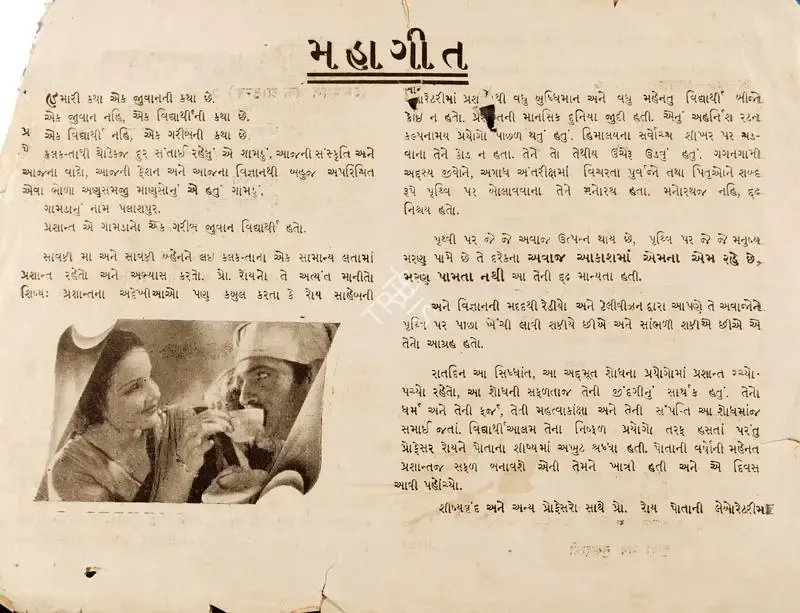 મહાગીત
અમારી કથા એક જુવાનની કથા છે.
એક જુવાન નહિ, એક વિદ્યાર્થીની કથા છે.
એક વિદ્યાર્થી નહિ, એક ગરીબની કથા છે.
કલકત્તાથી થોડેકજ દુર સંતાઈ રહેલું એ ગામડું. આજની સંસ્કૃતિ અને
આજના વાદો, આજની ફેશન અને આજના વિજ્ઞાનથી બહુજ અપરિચિત
એવા ભોળા અણુસમજી માણસોનું એ હતું ગામડું.
ગામડાનું નામ પલાશપુર.
પ્રશાન્ત એ ગામડાનો એક ગરીબ જુવાન વિદ્યાર્થી હતો.
સાવકી મા અને સાવકી બ્હેનને લઇ કલકત્તાના એક સામાન્ય લતામાં
પ્રશાન્ત રહેતો અને અભ્યાસ કરતો. પ્રો. રાયનો તે અત્યંત માનીતો
શિષ્ય: પ્રશાન્તના અદેખીઆઓ પણ કબુલ કરતા કે રાય સાહેબની
લેબોરેટરીમાં પ્રશાન્તથી વધુ બુધ્ધિમાન અને વધુ મહેનતુ વિદ્યાર્થી બીજો
કોઇ ન હતો. પ્રશાન્તની માનસિક દુનિયા જુદી હતી. એનું અહર્નિશ રટન
કલ્પનામય પ્રયોગો પાછળ થતું હતું. હિમાલયના સર્વોચ્ચ શીખર પર ચડ-
વાના તેને કોડ ન હતા. તેને તો તેથીય ઉંચેરૂં ઉડવું હતું. ગગનગામી
અદ્રસ્ય જીવોને, અગાધ અંતરીક્ષમાં વિચરતા પુર્વજો તથા પિતૃઓને શબ્દ
રૂપે પૃથ્વિ પર બોલાવવાના તેને મનોરથ હતા. મનોરથજ નહિ, દ્રઢ
નિશ્ચય હતો.
પૃથ્વી પર જે જે અવાજ ઉત્પન્ન થાય છે, પૃથ્વિ પર જે જે મનુષ્ય
મરણ પામે છે તે દરેકનો અવાજ આકાશમાં એમના એમ રહે છે,
મરણ પામતા નથી આ તેની દ્રઢ માન્યતા હતી.
અને વિજ્ઞાનની મદદથી રેડીયો અને ટેલીવીઝન દ્વારા આપણે તે અવાજોને
પૃથ્વિ પર પાછા ખેંચી લાવી શકીયે છીએ અને સાંભળી શકીએ છીએ એ
તેનો આગ્રહ હતો.
રાતદિન આ સિધ્ધાંત, આ અદ્ભૂત શોધના પ્રયોગોમાં પ્રશાન્ત ગ્ચ્યો-
પચ્યો રહેતો, આ શોધની સફળતાજ તેની જીંદગીનું સાર્થક હતું. તેનો
ધર્મ અને તેની ફર્જ, તેતી મહત્વાકાંક્ષા અને તેની સંપત્તિ આ શોધમાંજ
સમાઈ જતાં. વિદ્યાર્થીઆલમ તેના નિષ્ફળ પ્રયોગો તરફ હસતાં પરંતુ
પ્રોફેસર રાયને પોતાના શીષ્યમાં અખુટ શ્રધ્ધા હતી. પોતાની વર્ષોની મહેનત
પ્રશાન્તજ સફળ બનાવશે એની તેમને ખાત્રી હતી અને એ દિવસ
આવી પહોંચ્યો.
શીષ્યવૃંદ અને અન્ય પ્રોફેસરો સાથે પ્રો. રાય પોતાની લેબોરેટરીમાં